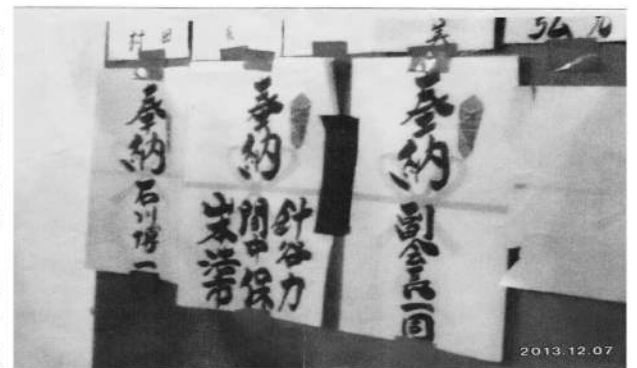 村田
美
奉納
副会長一同
奉納
針谷力
間中保
山本浩市
奉納
石川博一
2013.12.07